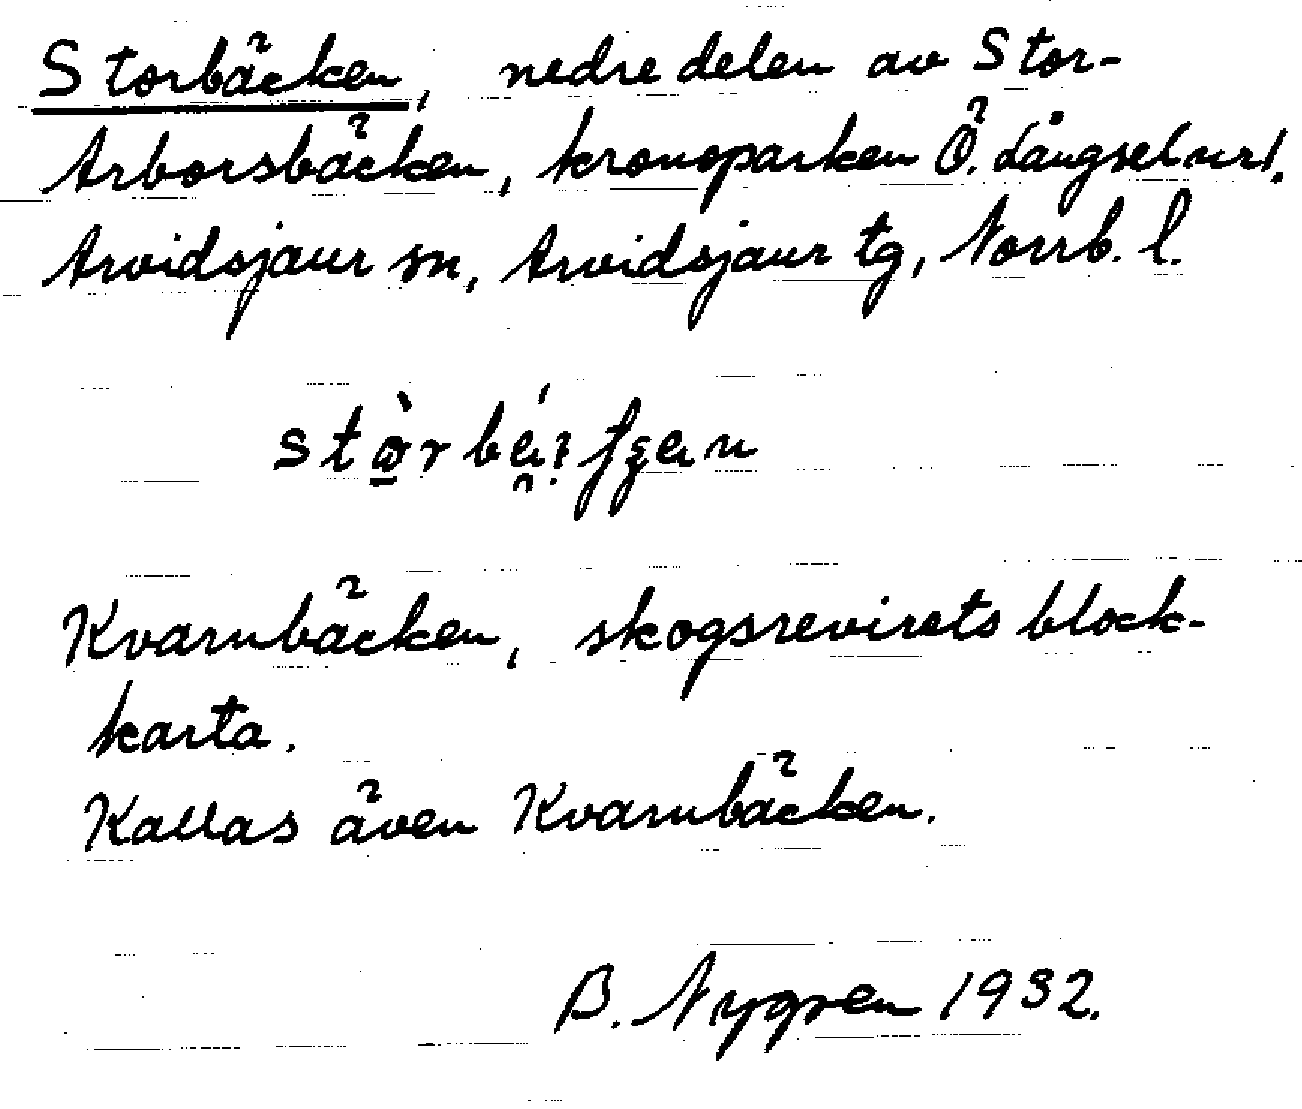 Storbäcken, nedre delen av Stor-
Arborsbäcken, kronoparken Ö. Långsel nr 1.
Arvidsjaur sn, Arvidsjaur tg, Norrb. l.
Kvarnbäcken, skogsrevirets block-
karta.
Kallas även Kvarnbäcken.
B. Nygren 1932.